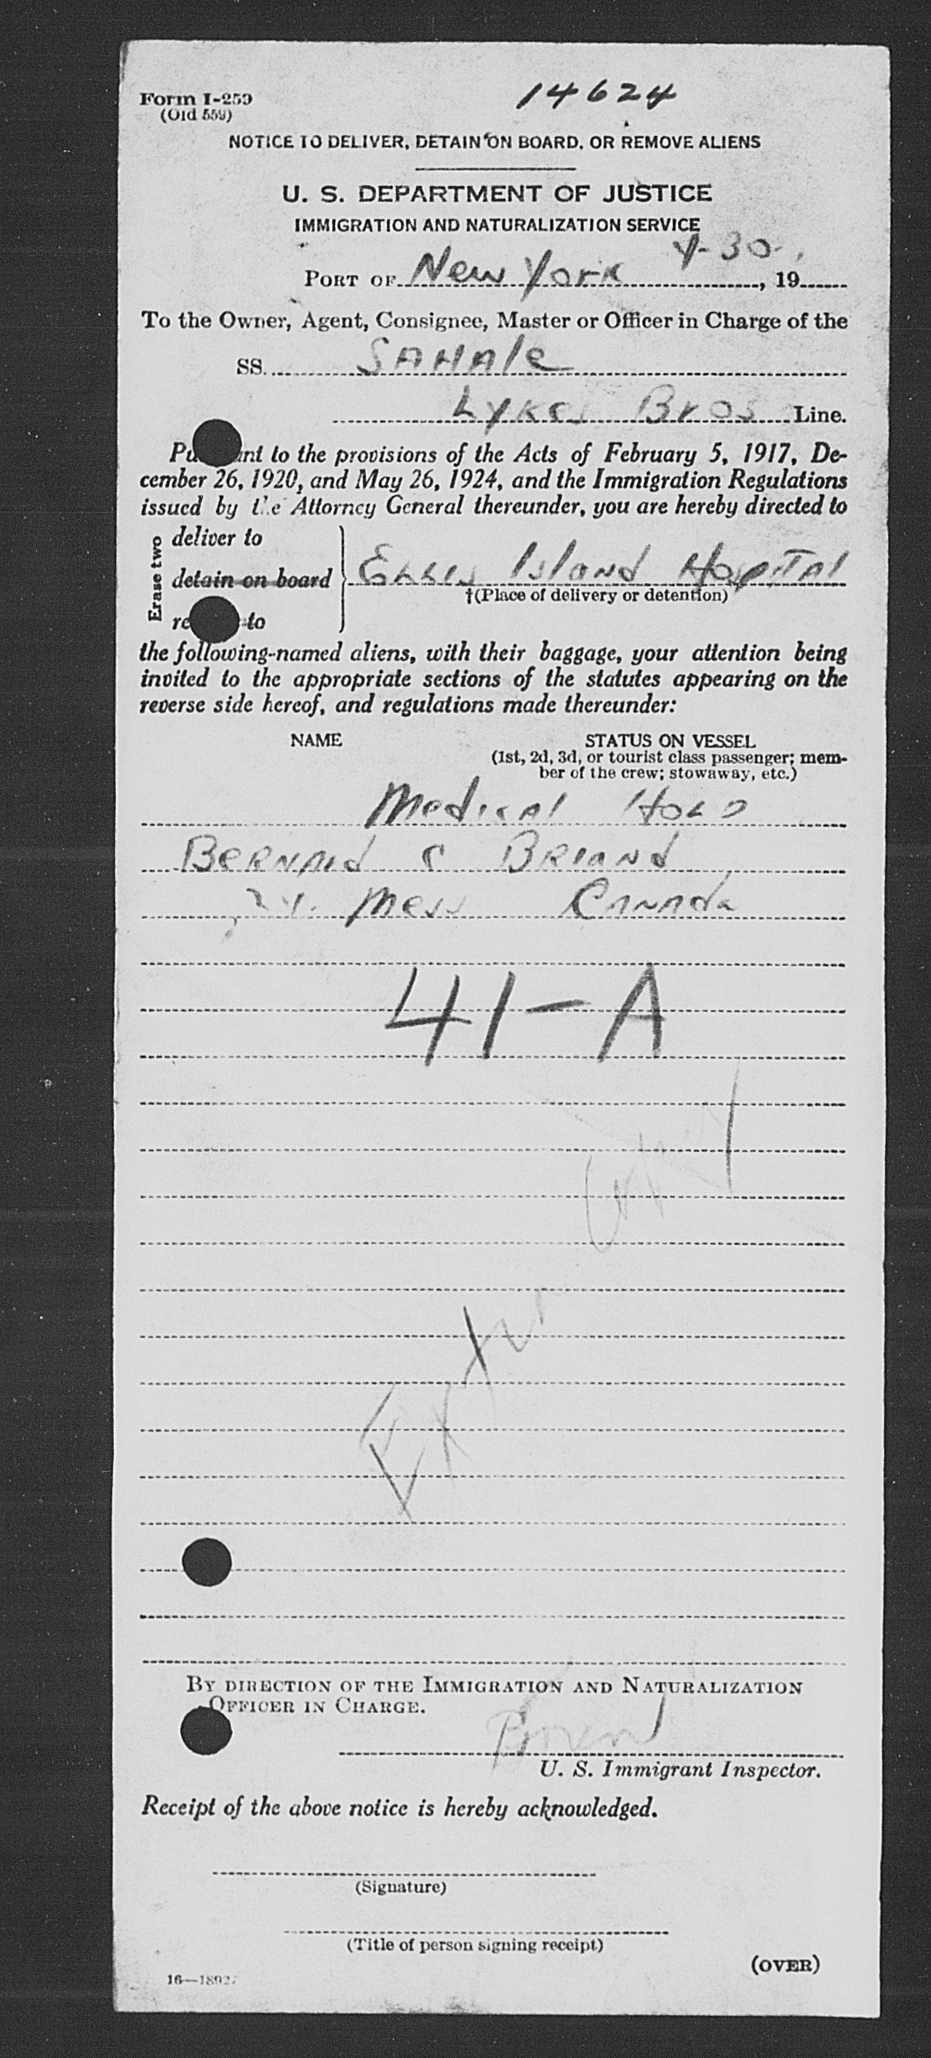 Form I-259
(Old 559)
14624
NOTICE TO DELIVER, DETAIN ON BOARD, OR REMOVE ALIENS
U. S. DEPARTMENT OF JUSTICE
IMMIGRATION AND NATURALIZATION SERVICE
PORT OF New York 4-30, 19
To the Owner, Agent, Consignee, Master or Officer in Charge of the
SS. SAHAle
Lykes Bros Line.
Pu nt to the provisions of the Acts of February 5, 1917, De-
cember 26, 1920, and May 26, 1924, and the Immigration Regulations
issued by the Attorney General thereunder, you are hereby directed to
Erase two
deliver to
detain on board Ellis Island Hospital
†(Place of delivery or detention)
re to
the following-named aliens, with their baggage, your attention being
invited to the appropriate sections of the statutes appearing on the
reverse side hereof, and regulations made thereunder:
NAME STATUS ON VESSEL
(1st, 2d, 3d, or tourist class passenger; mem-
ber of the crew; stowaway, etc.)
Medical Hold
Bernard C Briand
24. Mess Canada
41-A
Extra Copy
BY DIRECTION OF THE IMMIGRATION AND NATURALIZATION
OFFICER IN CHARGE.
U. S. Immigrant Inspector.
Receipt of the above notice is hereby acknowledged.
(Signature)
(Title of person signing receipt)
(OVER)
16—18927